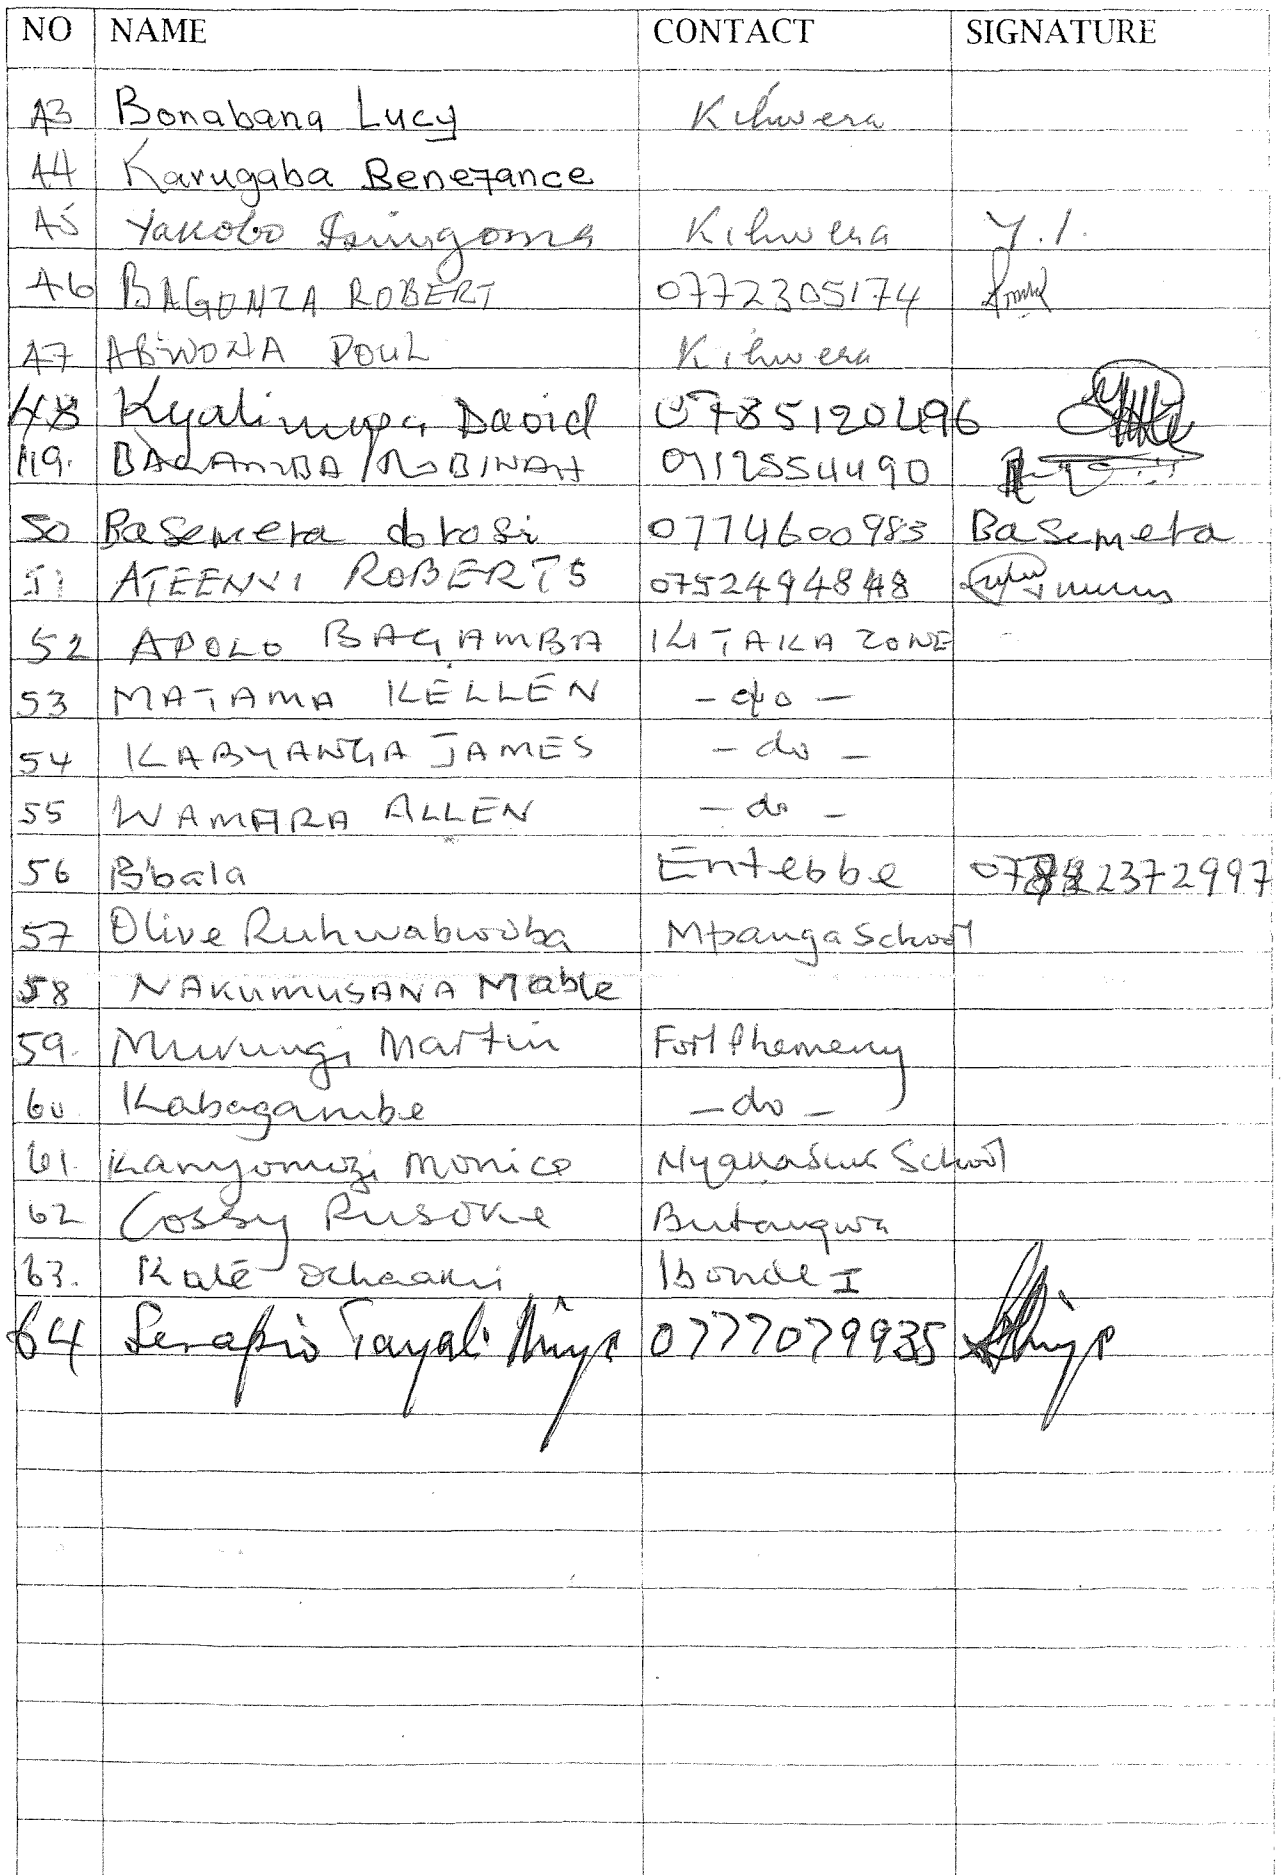 NO NAME CONTACT SIGNATURE
43 Bonabana Lucy Kihwera
44 Karugaba Benezance
45 Yakobo Isingoma Kihwera Y.I.
46 BAGONZA ROBERT 0772305174
47 ABWONA POUL Kihwera
48 Kyalimupa David 0785120496
49. BAGAMBA ROBINAH
50 Basemera dorosi 0774600983 Basemera
51 ATEENYI ROBERTS 0752494848
52 APOLO BAGAMBA KITAKA ZONE
53 MATAMA KELLEN - do -
54 KABYANGA JAMES - do -
55 WAMARA ALLEN - do -
56 Bbala Entebbe
57 Olive Ruhwabwooba Mpanga School
58 NAKUMUSANA Mable
59. Murungi Martin Fort
60 Kabagambe - do -
61. Kanyomozi Monica School
62 Cossy Rusoke Butangwa
63. Kate Ochaaki Ibonde I
64 0777079935